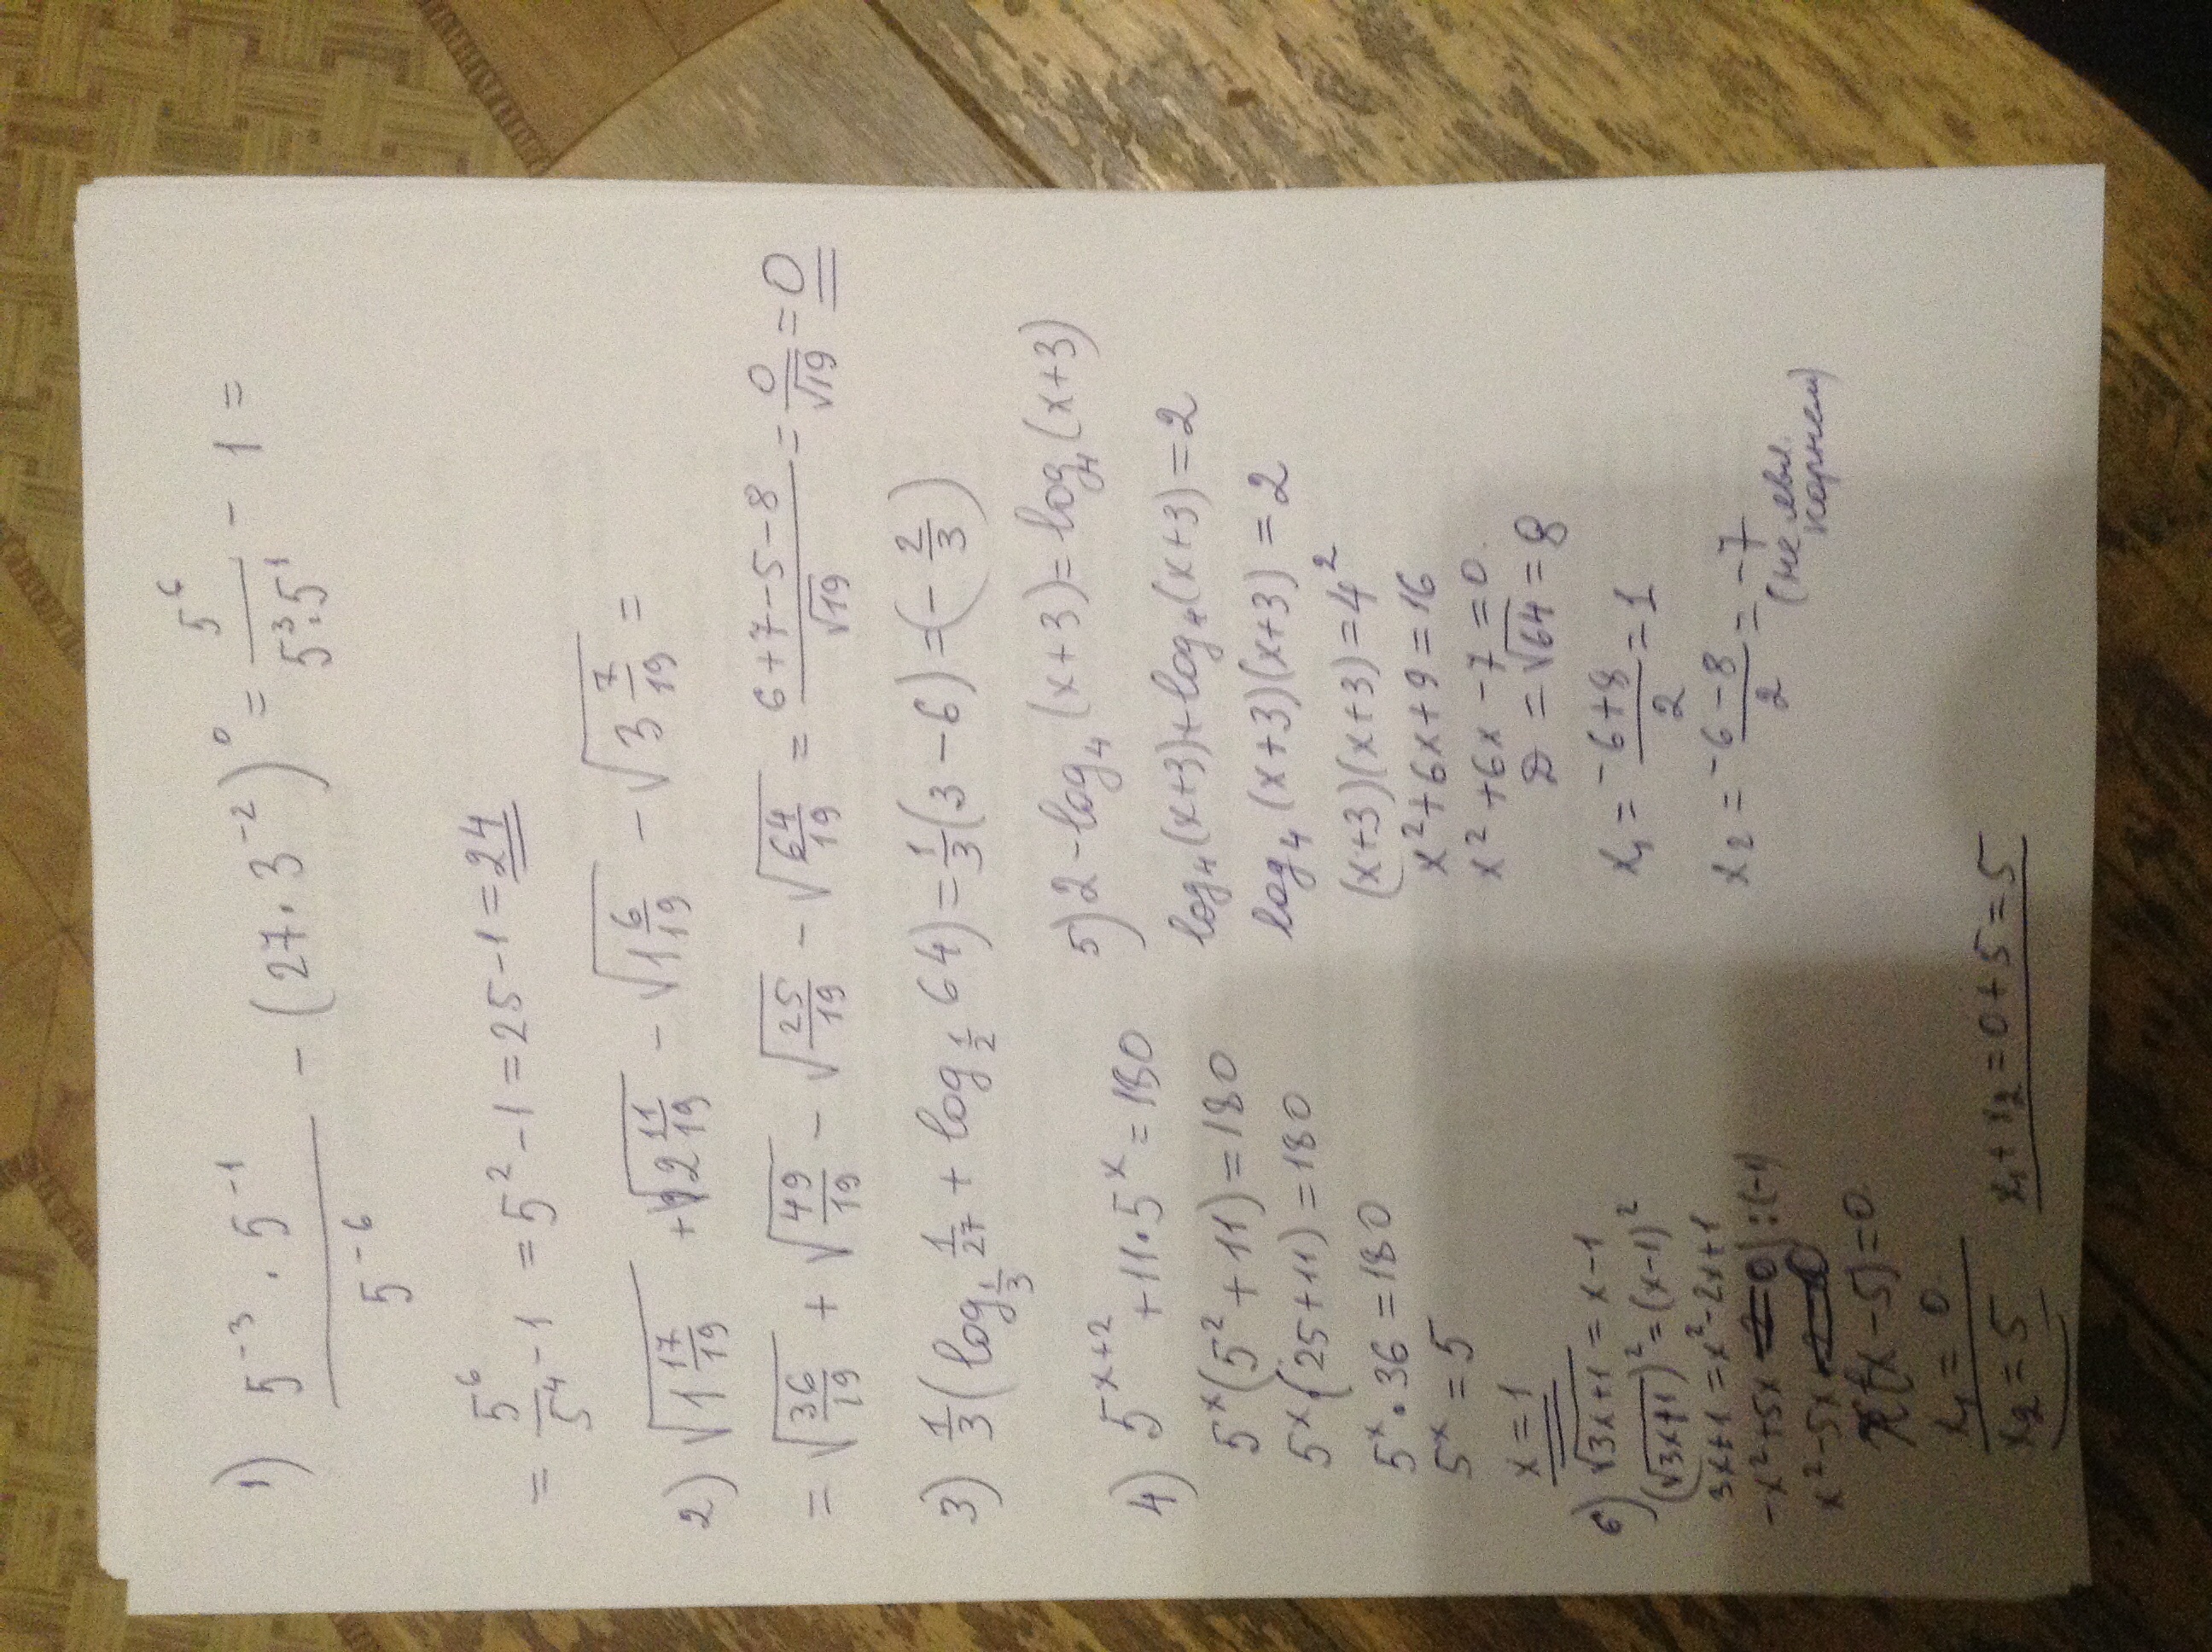 1) (5⁻³ · 5⁻¹)/5⁻⁶ − (27 · 3⁻²)⁰ = 5⁶/(5³·5¹) − 1 =
= 5⁶/5⁴ − 1 = 5² − 1 = 25 − 1 = 24
2) √(1 17/19) + √(2 11/19) − √(1 6/19) − √(3 7/19) =
= √(36/19) + √(49/19) − √(25/19) − √(64/19) = (6+7−5−8)/√19 = 0/√19 = 0
3) 1/3(log_{1/3} 1/27 + log_{1/2} 64) = 1/3(3−6) = (−2/3)
4) 5^{x+2} + 11·5^x = 180
5^x(5² + 11) = 180
5^x(25+11) = 180
5^x · 36 = 180
5^x = 5
x = 1
5) 2 − log₄(x+3) = log₄(x+3)
log₄(x+3) + log₄(x+3) = 2
log₄(x+3)(x+3) = 2
(x+3)(x+3) = 4²
x² + 6x + 9 = 16
x² + 6x − 7 = 0.
D = √64 = 8
x₁ = (−6+8)/2 = 1
x₂ = (−6−8)/2 = −7
(не явл.
корнем)
6) √(3x+1) = x−1
(√(3x+1))² = (x−1)²
3x+1 = x²−2x+1
−x²+5x = 0 | :(−1)
x²−5x
x(x−5) = 0.
x₁ = 0.
x₂ = 5
x₁ + x₂ = 0 + 5 = 5